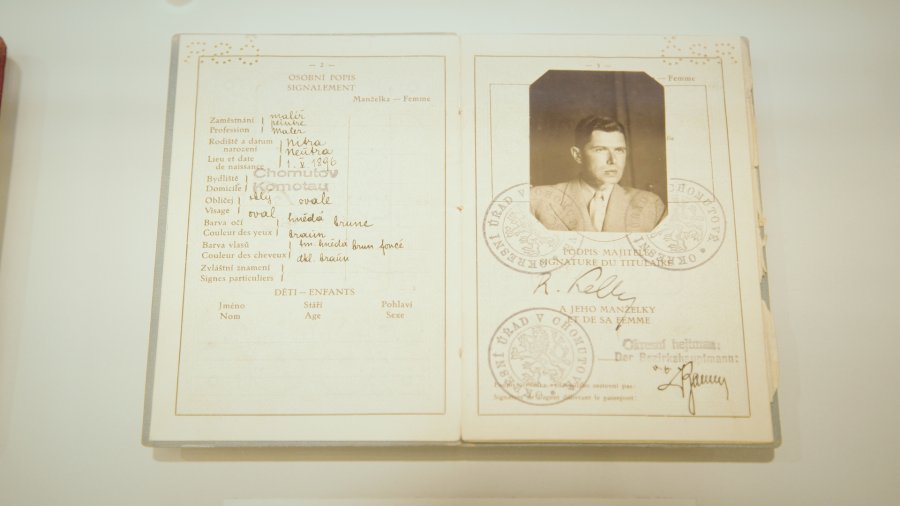 — 2 —
OSOBNÍ POPIS
SIGNALEMENT
Manželka — Femme
malíř
Zaměstnání peintre
Profession Maler
Rodiště a datum Nitra
narození Neutra
Lieu et date
de naissance 1. V. 1896
Chomutov
Bydliště
Domicile Komotau
Obličej ovale
Visage oval
Barva očí hnědá brune
Couleur des yeux braun
Barva vlasů tm. hnědá brun foncé
Couleur des cheveux dkl. braun
Zvláštní znamení
Signes particuliers
DĚTI — ENFANTS
Jméno Stáří Pohlaví
Nom Age Sexe
— 3 —
— Femme
OKRESNÍ ÚŘAD V CHOMUTOVĚ
OKRESNÍ ÚŘAD V CHOMUTOVĚ
PODPIS MAJITELE
SIGNATURE DU TITULAIRE
A JEHO MANŽELKY
ET DE SA FEMME
OKRESNÍ ÚŘAD V CHOMUTOVĚ
Okresní hejtman:
Der Bezirkshauptmann:
pas:
Signature de l'agent délivrant le passeport: